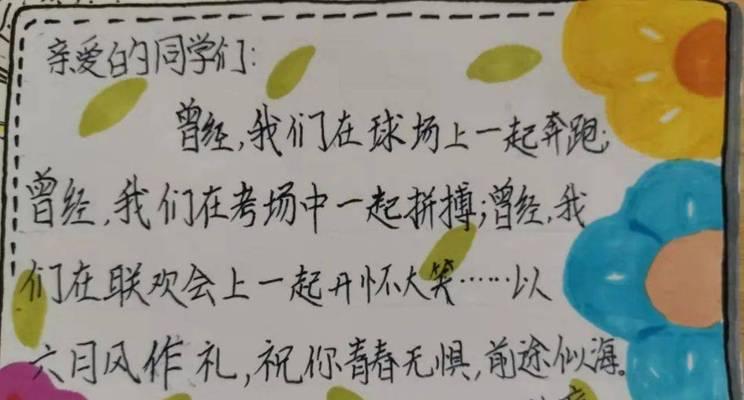 亲爱的同学们:
曾经,我们在球场上一起奔跑;
曾经,我们在考场中一起拼搏;曾经,我
们在联欢会上一起开怀大笑……以
六月风作礼,祝你青春无惧,前途似海。